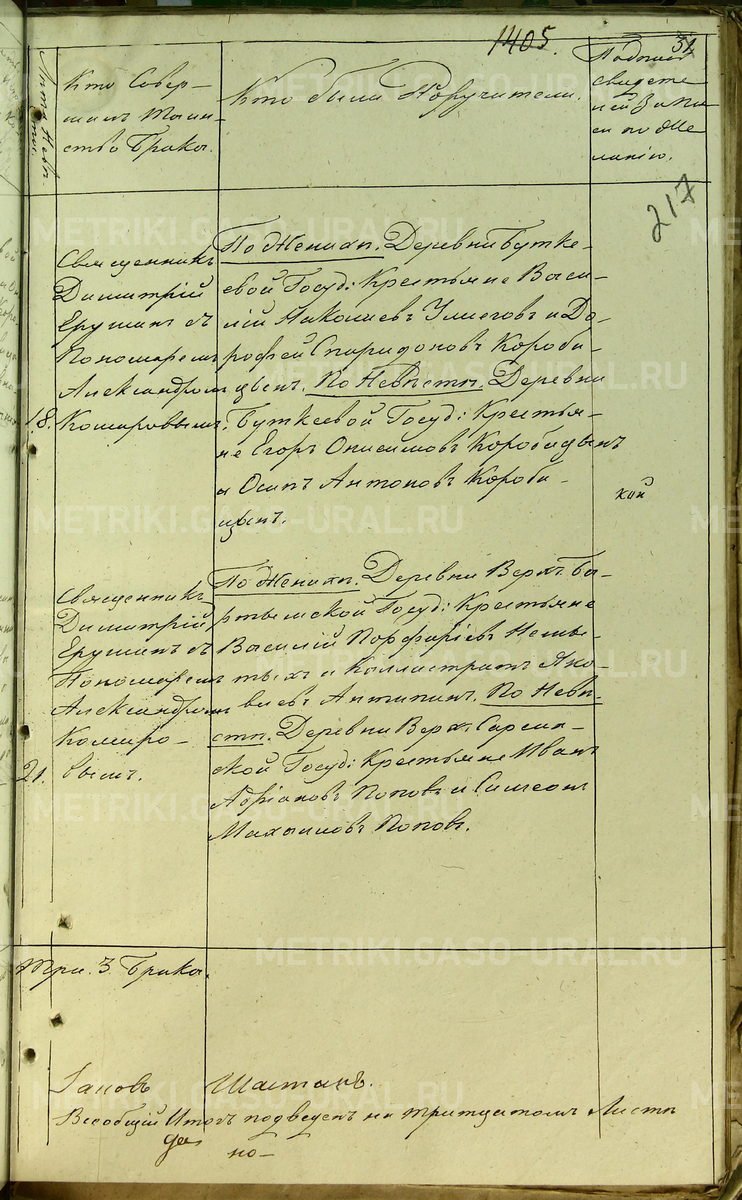 1405.
31
Лѣта Невѣсты.
Кто Совер-
шалъ Таин-
ство Брака.
Кто были Поручители.
Подписъ
свидете-
лей Запи-
си по же-
ланію.
217
Священникъ
Димитрій
Ерушинъ съ
Пономаремъ
Александромъ
18. Комаровымъ.
По Женихѣ. Деревни Бутке-
евой Госуд: Крестьяне Васи-
лій Николаевъ и До-
рофей Спиридоновъ Короби-
цынъ. По Невѣстѣ. Деревни
Буткеевой Госуд: Крестья-
не Егоръ Онисимовъ Коробицынъ
и Осипъ Антоновъ Короби-
цынъ.
кой
Священникъ
Димитрій
Ерушинъ съ
Пономаремъ
Александромъ
Комаро-
21. вымъ.
По Женихѣ. Деревни Верхъ Ба-
ртымской Госуд: Крестьяне
Василій Порфиріевъ
и Каллистратъ Яко-
влевъ Антипинъ. По Невѣ-
стѣ. Деревни Верх: Сарсин-
ской Госуд: Крестьяне Иванъ
Адріановъ Поповъ и Симеонъ
Михаиловъ Поповъ.
Три. 3. Брака.
Іаковъ
Всеобщій Итогъ подведенъ на тритцатомъ Листѣ
но
METRIKI.GASO-URAL.RU